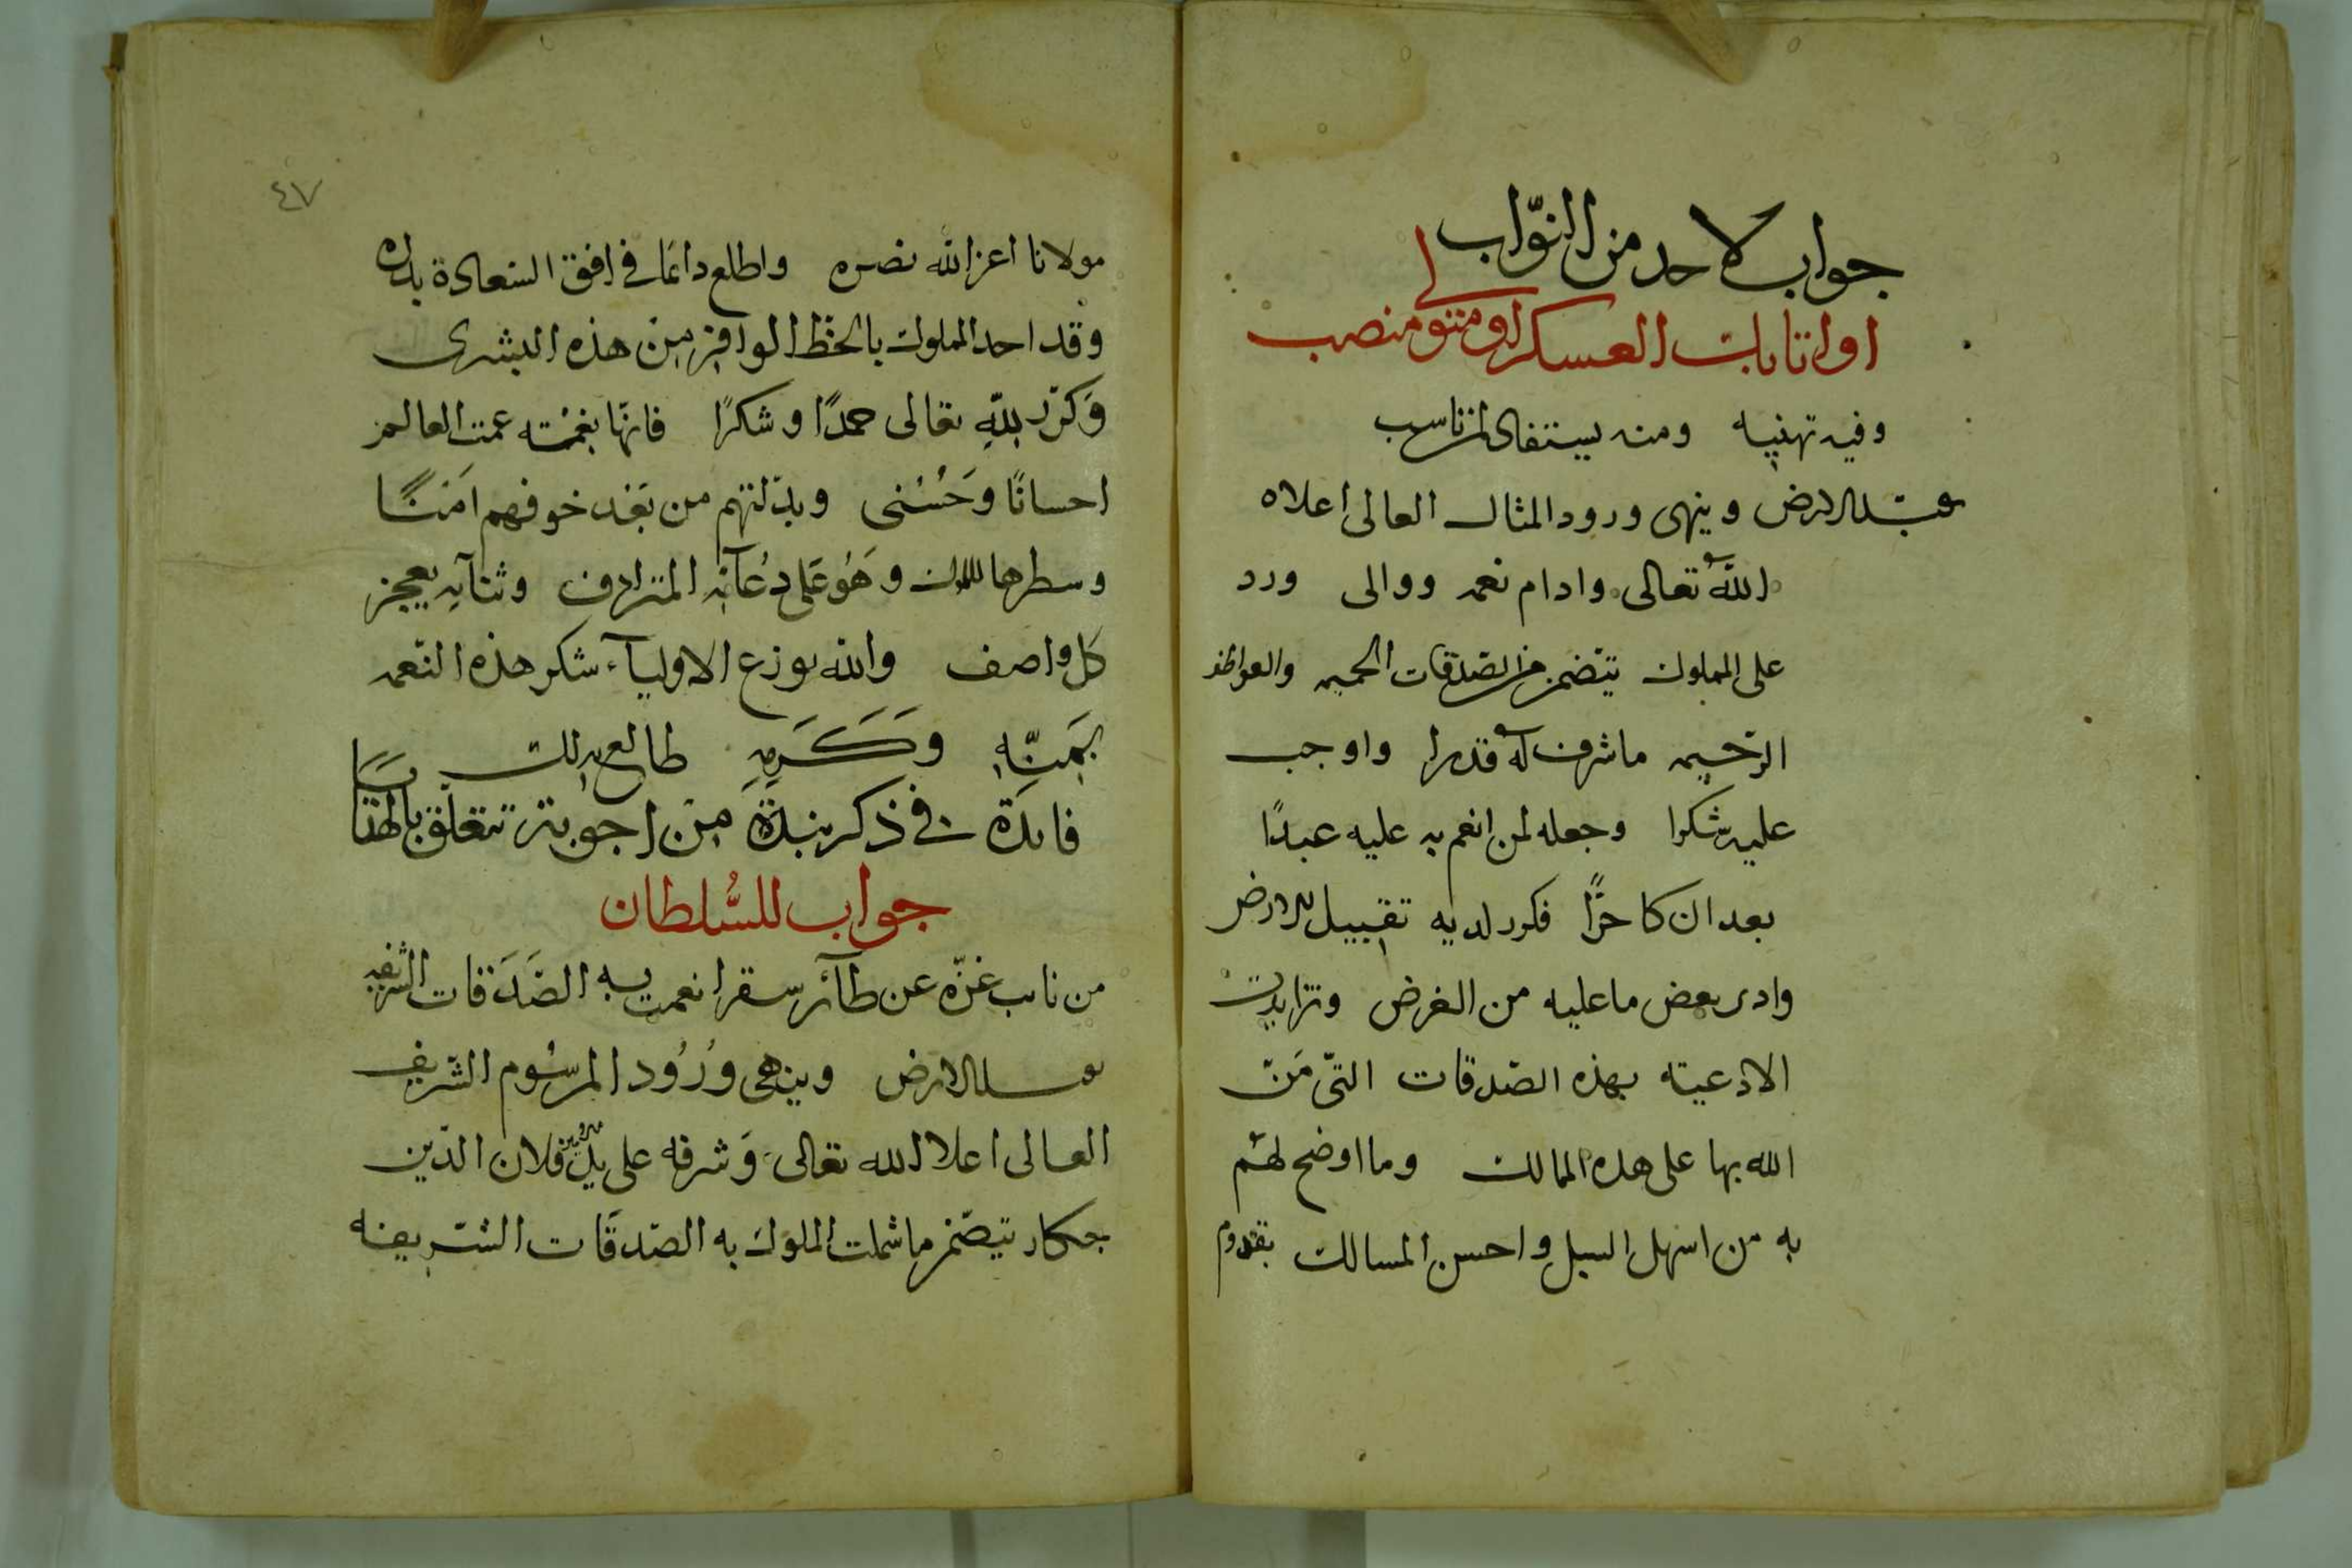 جواب لاحد من النوّاب
او اتابات العسكر او متولى منصب
وفيه تهنيه ومنه يستفاد لمن ناسب
يقبل الارض وينهى ورود المثال العالى اعلاه
الله تعالى وادام نعمه ووالى ورد
على المملوك يتضمن من الصدقات الحميمه والعواطف
الرحيمه ما شرف له قدرا واوجب
عليه شكرا وجعله لمن انعم به عليه عبدًا
بعد ان كا حرًّا فكرر لديه تقبيل الارض
وادى بعض ما عليه من الفرض وتزايدت
الادعيته بهذه الصّدقات التّى مَنّ
الله بها على هذه الممالك وما اوضح لهم
به من اسهل السبل واحسن المسالك بقدوم
٤٧
مولانا اعز الله نصره واطلع دائما فى افق السعادة بدره
وقد احد المملوك بالحظ الوافر من هذه البشرى
وَكرّر لله تعالى حمدًا وشكرًا فانّها نعمته عمت العالم
احسانًا وَحُسْنى وبدّلتهم من بَعْد خوفهم اَمنًا
وسطرها المملوك وَهُوَ عَلى دُعآئه المترادف وثنآيه يعجز
كل واصف والله يوزع الاوليآء شكر هذه النّعمه
بمَنّه وَكَرَمِهِ طالع بدلك
فايدة فى ذكر نبذة من اجوبة تتعلق بالهنا
جواب للسُّلطان
من نايب غزّه عن طآئر سقر انعمت به الصَدَقات الشريفه
يقبل الارض وينهى وُرُود المرسُوم الشّريف
العالى اعلاه الله تعالى وَشرفه على يد فلان الدّين
جكار يتضّمن ما شملت المملوك به الصّدقَات الشّريفه